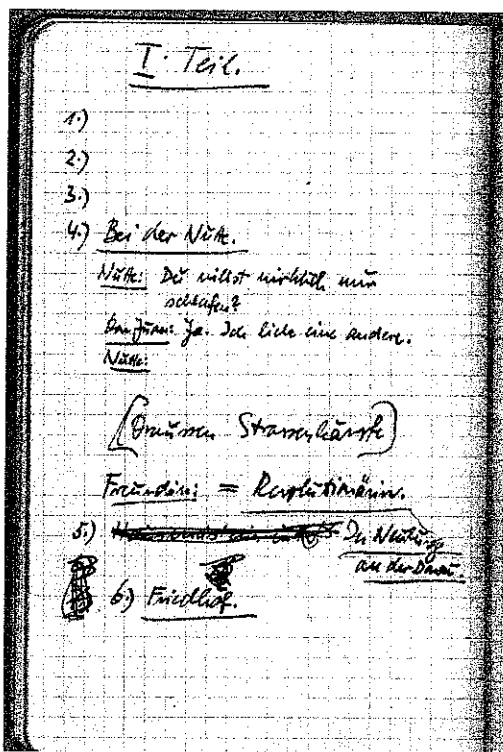 I. Teil.
1.)
2.)
3.)
4.) Bei der Nutte.
Nutte: Du willst wirklich nur
schlafen?
Don Juan: Ja. Ich liebe eine andere.
Nutte:
(Draussen Strassenkämpfe)
Freundin: = Revolutionärin.
5.) Die
an der
6.) Friedhof.